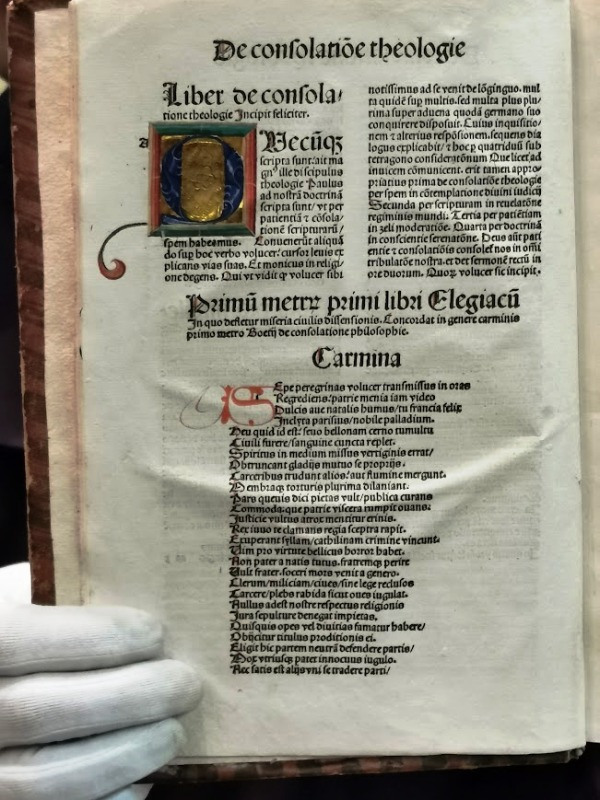 De consolatiōe theologie
Liber de consola/
tione theologie Incipit feliciter.
Vecūqꝫ
scripta sunt: ait ma
gnꝰ ille discipulus
theologie Paulus
ad nostrā doctrinā
scripta sunt/ vt per
patientiā ⁊ cōsola/
tionē scripturarū/
spem habeamus. Conuenerūt aliquā
do sup hoc verbo volucer/ cursor leuis ex
plicans vias suas. Et monicus in religi/
one degens. Qui vt vidit ꝙ volucer sibi
notissimus ad se venit de lōginquo. mul
ta quidē sup multis. sed multa plus plu/
rima super aduena quodā germano suo
conquirere disposuit. Cuius inquisitio/
nem ⁊ alterius respōsionem. sequens dia
logus explicabit/ ⁊ hoc ꝑ quatriduū sub
terragono consideratōnum Que licet ad
inuicem cōmunicent. erit tamen appro/
priatius prima de consolatiōe theologie
per spem in cōtemplatione diuini iudicij
Secunda per scripturam in reuelatōne
regiminis mundi. Tertia per patiētiam
in zeli moderatiōe. Quarta per doctrinā
in conscientie serenatōne. Deus aūt pati
entie ⁊ consolatiōis consolet nos in omi
tribulatōe nostra. et det sermonē rectū in
ore duorum. Quoꝝ volucer sic incipit.
Primū metrꝝ primi libri Elegiacū
In quo defletur miseria ciuilis dissensionis. Concordat in genere carminis
primo metro Boetij de consolatione philosophie.
Carmina
SEpe peregrinas volucer transmissus in oras
Regrediens: patrie menia iam video
Dulcis aue natalis humus/ tu francia felix
Inclyta parisius/ nobile palladium.
Heu quid id est: seuo bellonam cerno tumultu
Ciuili furere/ sanguine cuncta replet.
Spiritus in medium missus vertiginis errat/
Obtruncant gladijs mutuo se proprijs.
Carceribus trudunt alios: aut flumine mergunt.
Membraqꝫ torturis plurima dilaniant.
Pars queuis dici pietas vult/ publica curans
Commoda: que patrie viscera rumpit ouans.
Iusticie vultus atrox mentitur erinis.
Rex iuuo te clamans regia sceptra rapit.
Exuperant syllam/ cathilinam crimine vincunt.
Vim pro virtute bellicus horror habet.
Non pater a natis tutus. fratremqꝫ perire
Vult frater. soceri mors venit a genero.
Clerum/ miliciam/ ciues/ sine lege reclusos
Carcere/ plebs rabida sicut oues iugulat.
Nullus adest nostre respectus religionis
Iura sepulture denegat impietas.
Quisquis opes vel diuitias famatur habere/
Obijcitur titulus proditionis ei.
Eligit hic partem neutrā defendere partis/
Mox vtriusqꝫ patet innocuus iugulo.
Nec satis est alijs vni se tradere parti/